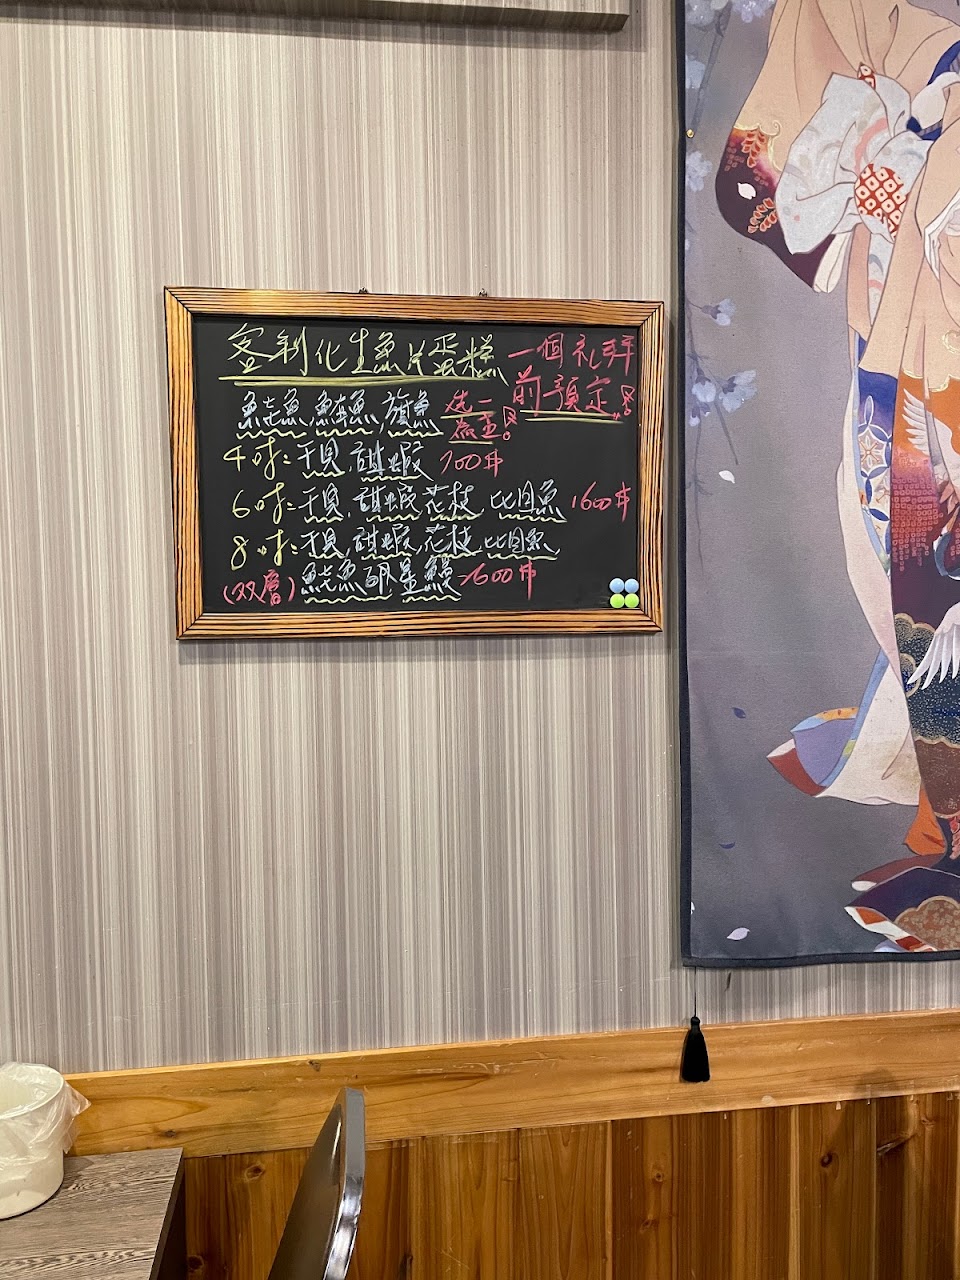 客制化生魚片蛋糕
一個礼拜
前預定
鮭魚,鮪魚,旗魚 選一
為主
4吋:干貝,甜蝦 700元
6吋:干貝,甜蝦,花枝,比目魚 1600
8吋:干貝,甜蝦,花枝,比目魚
(双層)鮭魚卵星鰻